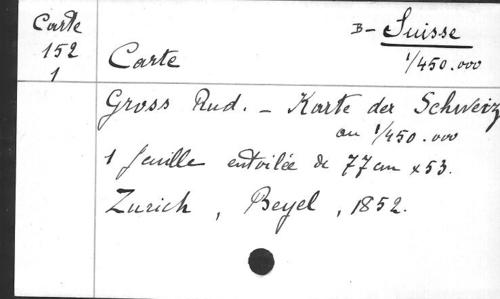 Carte
152
1
B- Suisse
Carte
1/450.000
Gross Rud. - Karte der Schweiz
au 1/450.000
1 feuille entoilée de 77 cm x 53.
Zurich, Beyel, 1852.